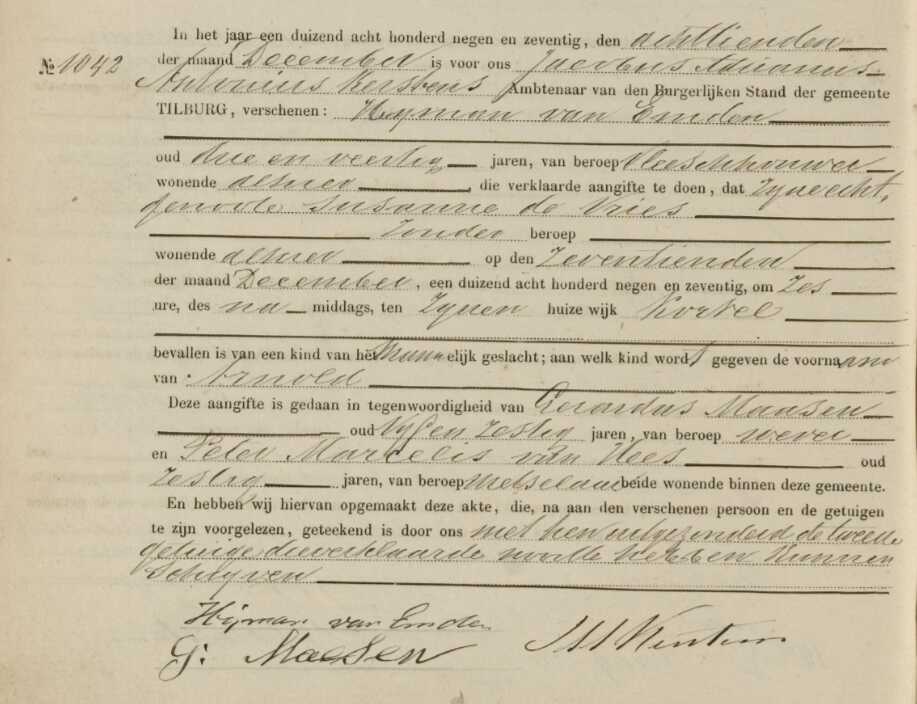 In het jaar een duizend acht honderd negen en zeventig, den achttienden
№ 1042 der maand December is voor ons Jacobus Adrianus
Antonius Kerstens Ambtenaar van den Burgerlijken Stand der gemeente
TILBURG, verschenen: Heyman van Emden
oud drie en veertig jaren, van beroep Vleeschhouwer
wonende alhier, die verklaarde aangifte te doen, dat Zijne echt-
genoote Susanne de Vries
Zonder beroep
wonende alhier op den Zeventienden
der maand December, een duizend acht honderd negen en zeventig, om Zes
ure, des na middags, ten Zijnen huize wijk Korvel
bevallen is van een kind van het Mannelijk geslacht; aan welk kind wordt gegeven de voornaam
van Arnold
Deze aangifte is gedaan in tegenwoordigheid van Gerardus Maasen
oud Vijf en Zestig jaren, van beroep wever
en Peter Marcelis van Hees oud
Zestig jaren, van beroep Metselaar beide wonende binnen deze gemeente.
En hebben wij hiervan opgemaakt deze akte, die, na aan den verschenen persoon en de getuigen
te zijn voorgelezen, geteekend is door ons met hen uitgezonderd de tweede
getuige die verklaarde nooit te hebben kunnen
Schrijven
Hijman van Emden
G: Maesen